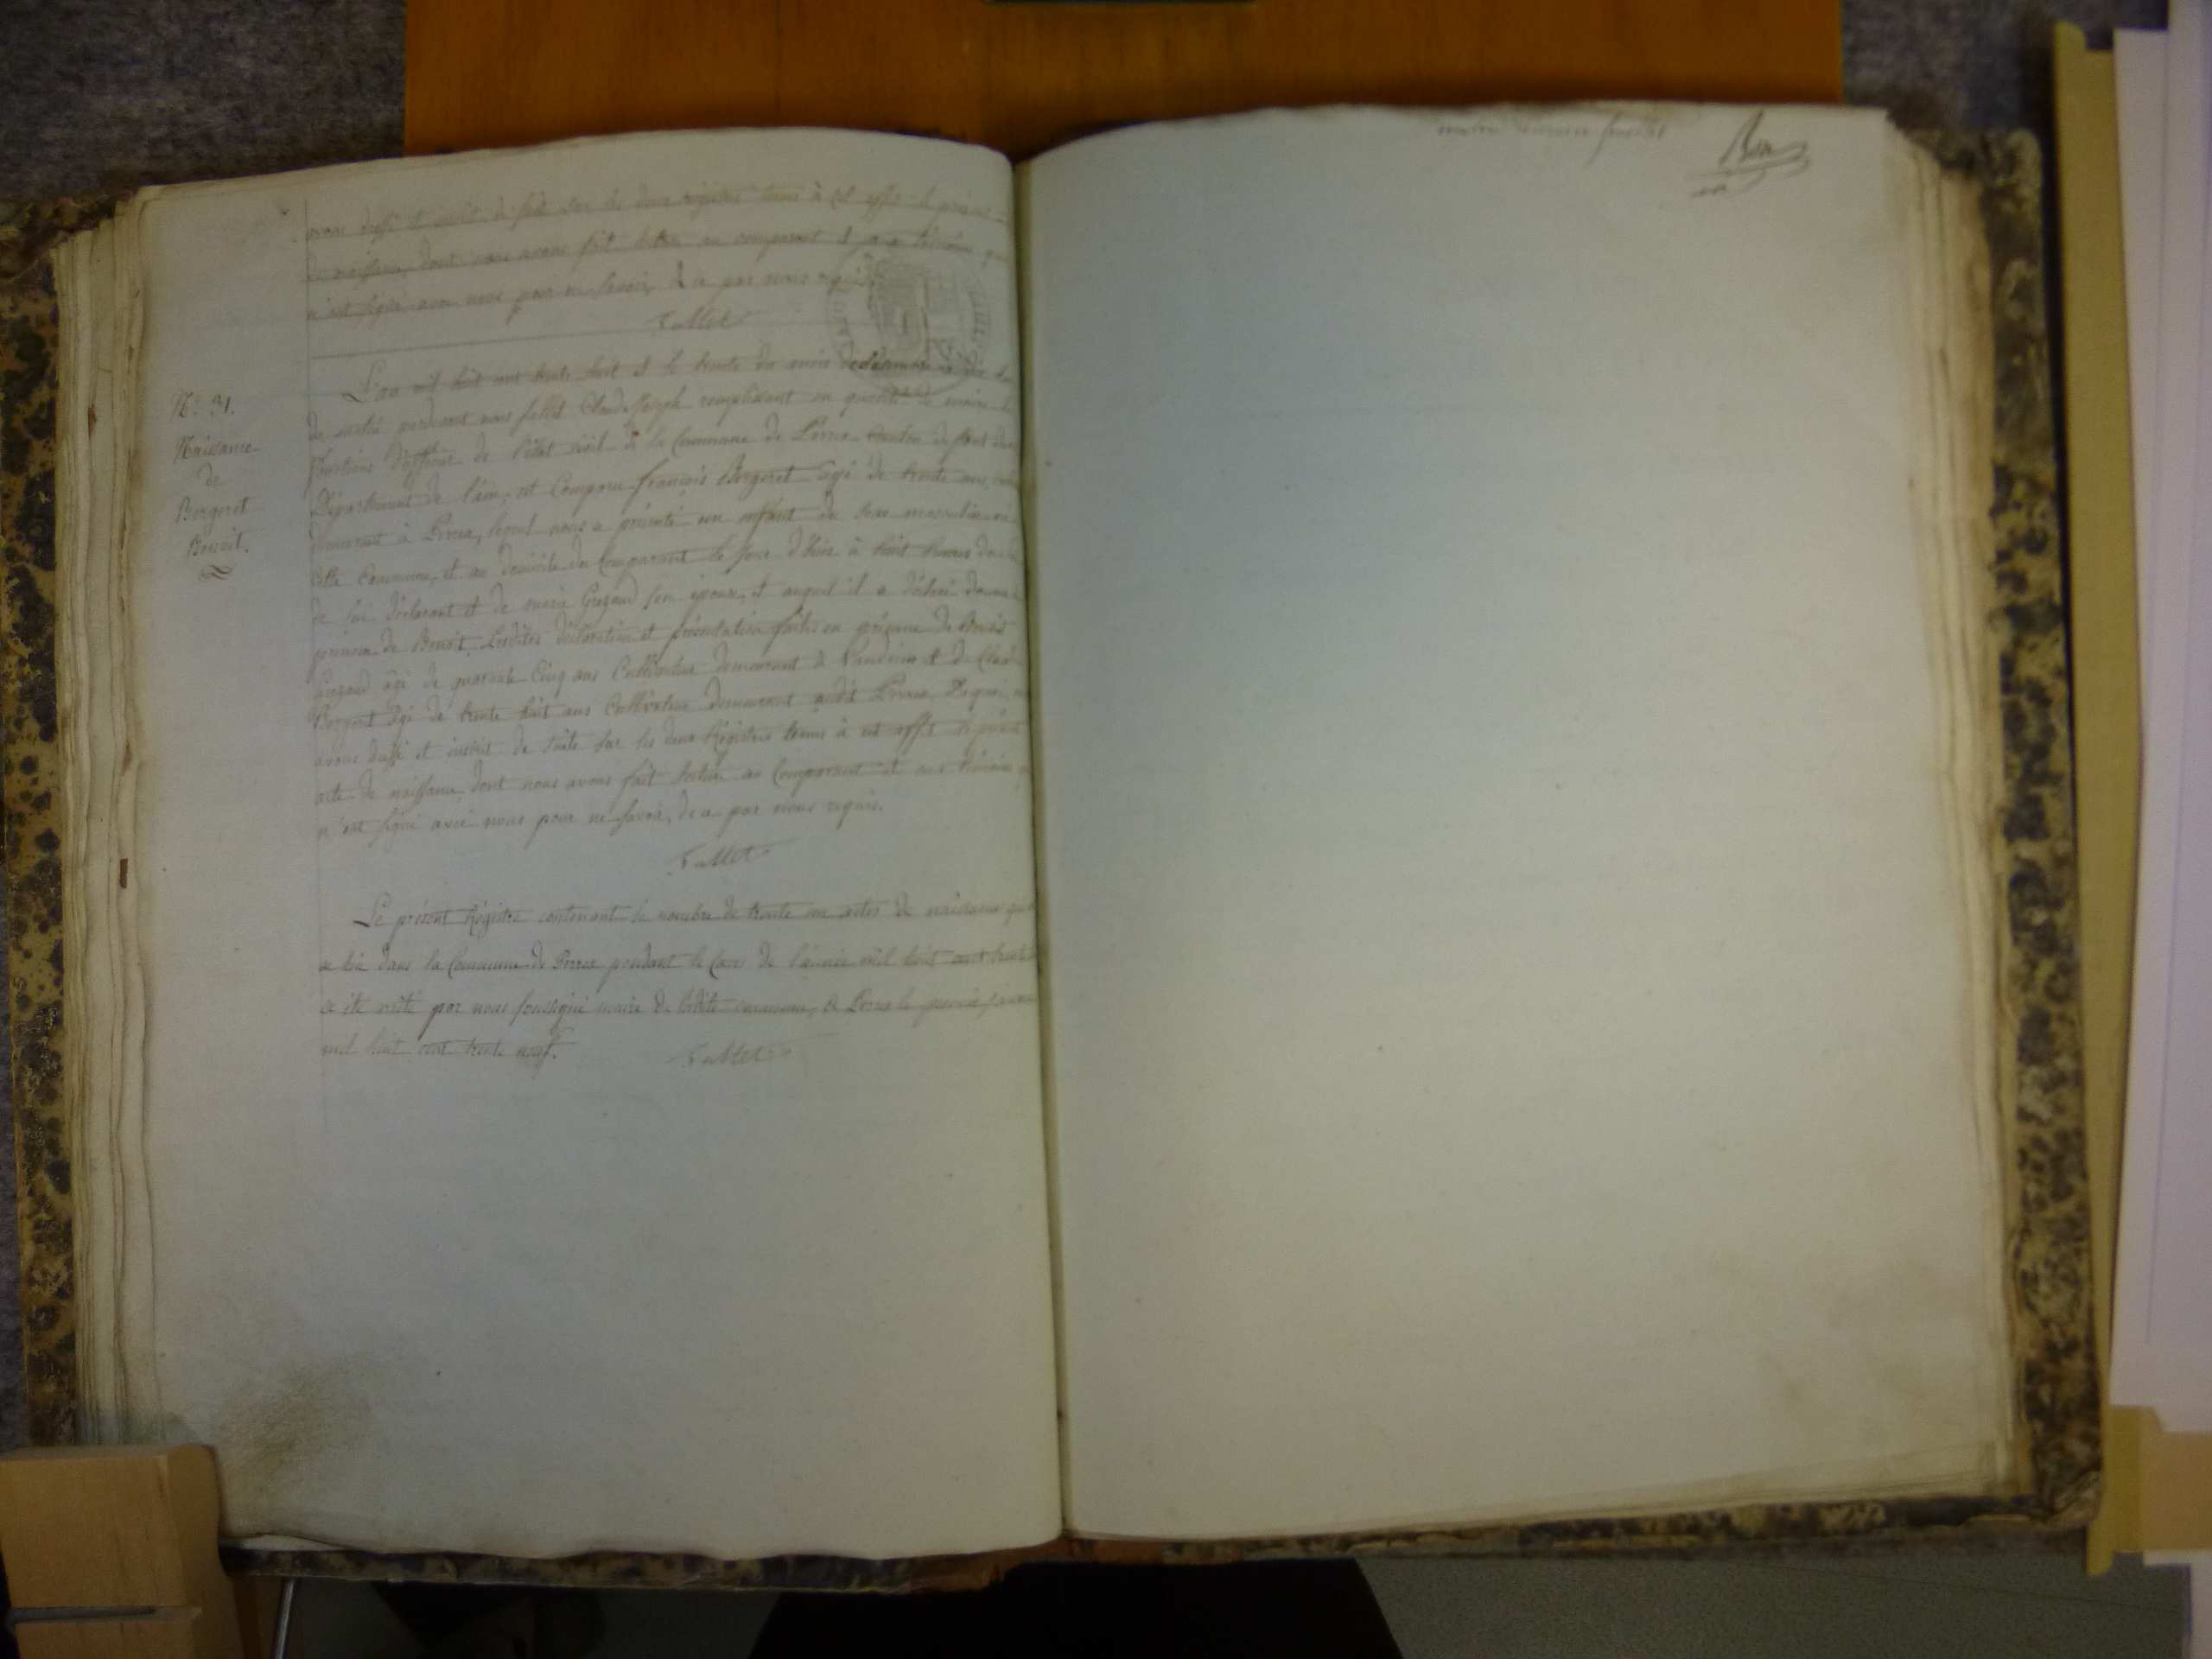 avons dressé et inscrit de suite sur les deux registres tenus à cet effet le présent
de naissance, dont nous avons fait lecture au comparant et aux témoins qui
n'ont signé avec nous pour ne savoir, de ce par nous requis.
Fallet
N.° 31.
Naissance
de
Bergeret
Benoit.
L'an mil huit cent trente huit et le trente du mois de décembre à dix heures
de matin pardevant nous fallet Claude Joseph remplissant en qualité de maire les
fonctions d'officier de l'état civil de la Commune de Perrex Canton de Pont
Département de l'ain, est Comparu françois Bergeret âgé de trente ans,
demeurant à Perrex, lequel nous a présenté un enfant du sexe masculin
cette Commune, et au domicile du Comparant le jour d'hier à huit heures du
de lui déclarant et de marie Gregaud son épouse, et auquel il a déclaré donner
prénom de Benoit. Lesdites déclaration et présentation faites en présence de Benoit
Gregaud âgé de quarante Cinq ans Cultivateur demeurant à Vandeins et de Claude
Bergeret âgé de trente huit ans Cultivateur demeurant audit Perrex. De quoi
avons dressé et inscrit de suite sur les deux Régistres tenus à cet effet le présent
acte de naissance, dont nous avons fait lecture au Comparant et aux témoins
n'ont signé avec nous pour ne savoir, de ce par nous requis.
Fallet
Le présent Régistre contenant le nombre de trente un actes de naissance
a lieu dans la Commune de Perrex pendant le Cours de l'année mil huit cent trente
a été arrêté par nous soussigné maire de ladite commune, à Perrex le premier janvier
mil huit cent trente neuf.
Fallet